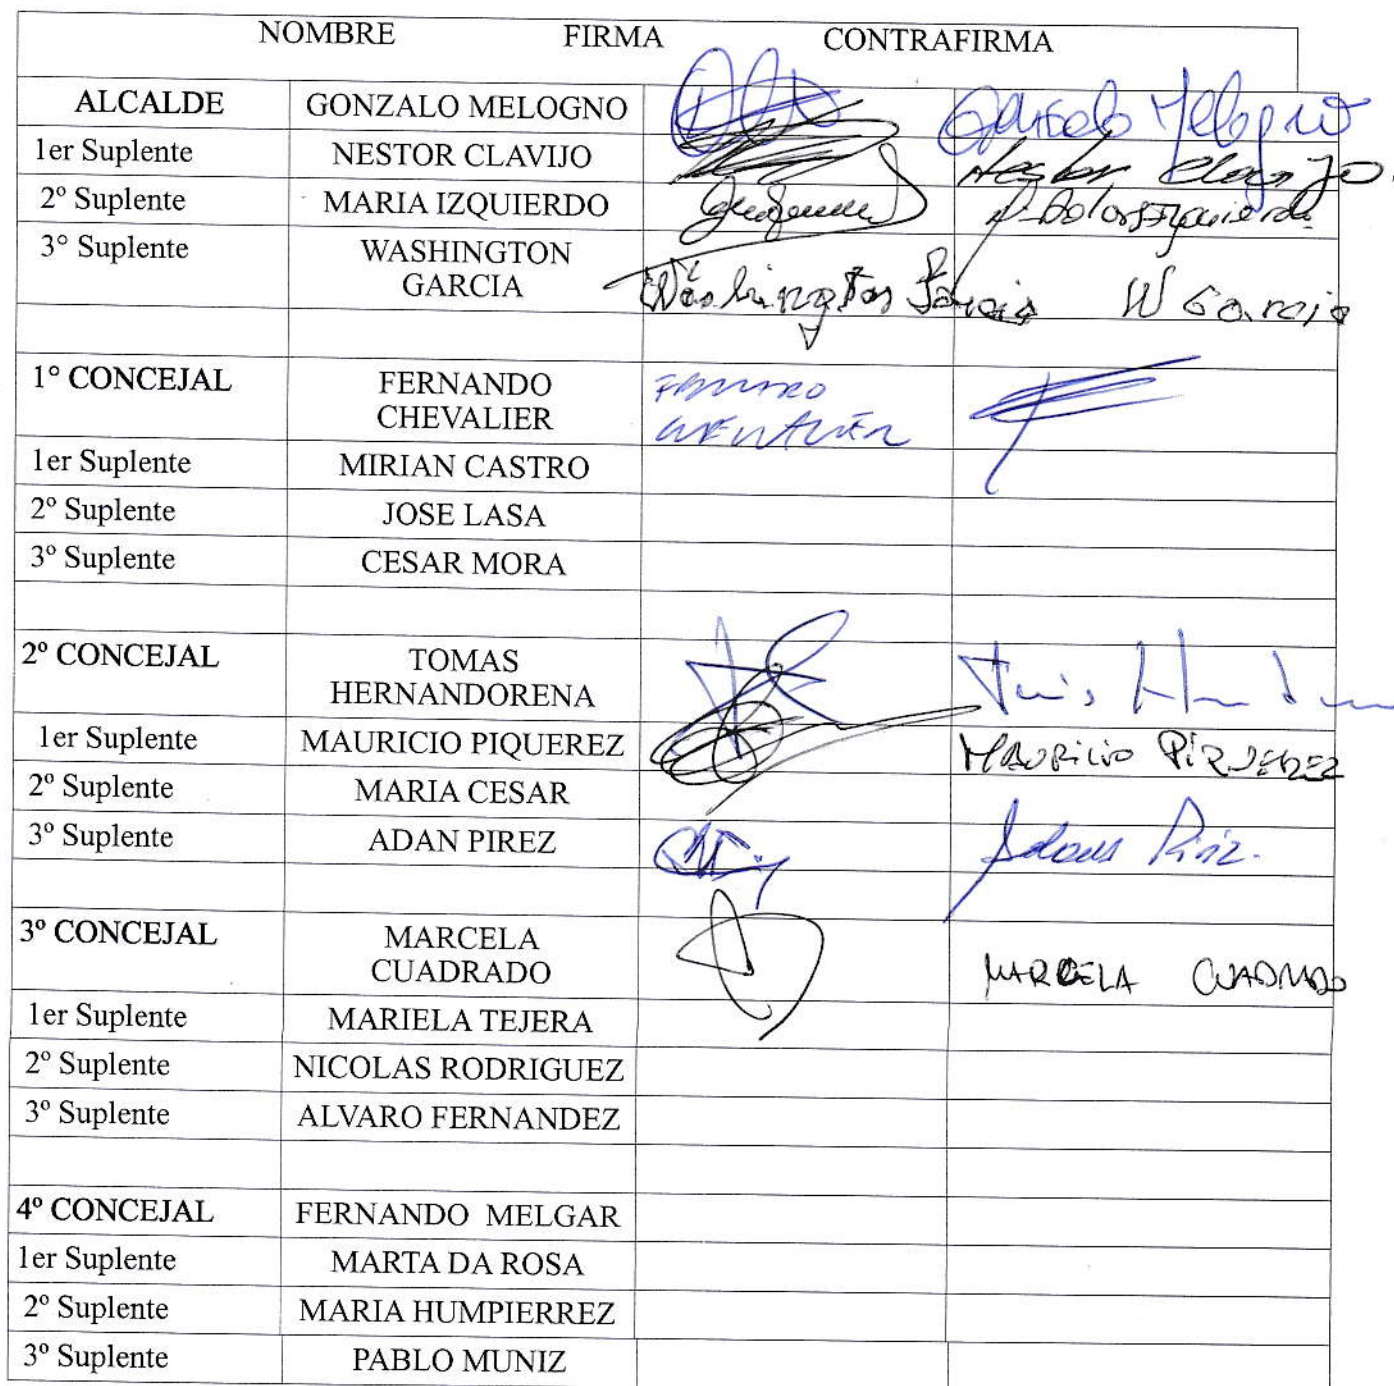 NOMBRE FIRMA CONTRAFIRMA
ALCALDE GONZALO MELOGNO Gonzalo Melogno
1er Suplente NESTOR CLAVIJO Nestor Clavijo.
2º Suplente MARIA IZQUIERDO
3° Suplente WASHINGTON
GARCIA Washington Garcia W Garcia
1° CONCEJAL FERNANDO
CHEVALIER
1er Suplente MIRIAN CASTRO
2º Suplente JOSE LASA
3º Suplente CESAR MORA
2º CONCEJAL TOMAS
HERNANDORENA
1er Suplente MAURICIO PIQUEREZ MAURICIO PIQUEREZ
2º Suplente MARIA CESAR
3º Suplente ADAN PIREZ
3º CONCEJAL MARCELA
CUADRADO MARCELA CUADRADO
1er Suplente MARIELA TEJERA
2º Suplente NICOLAS RODRIGUEZ
3º Suplente ALVARO FERNANDEZ
4º CONCEJAL FERNANDO MELGAR
1er Suplente MARTA DA ROSA
2º Suplente MARIA HUMPIERREZ
3º Suplente PABLO MUNIZ